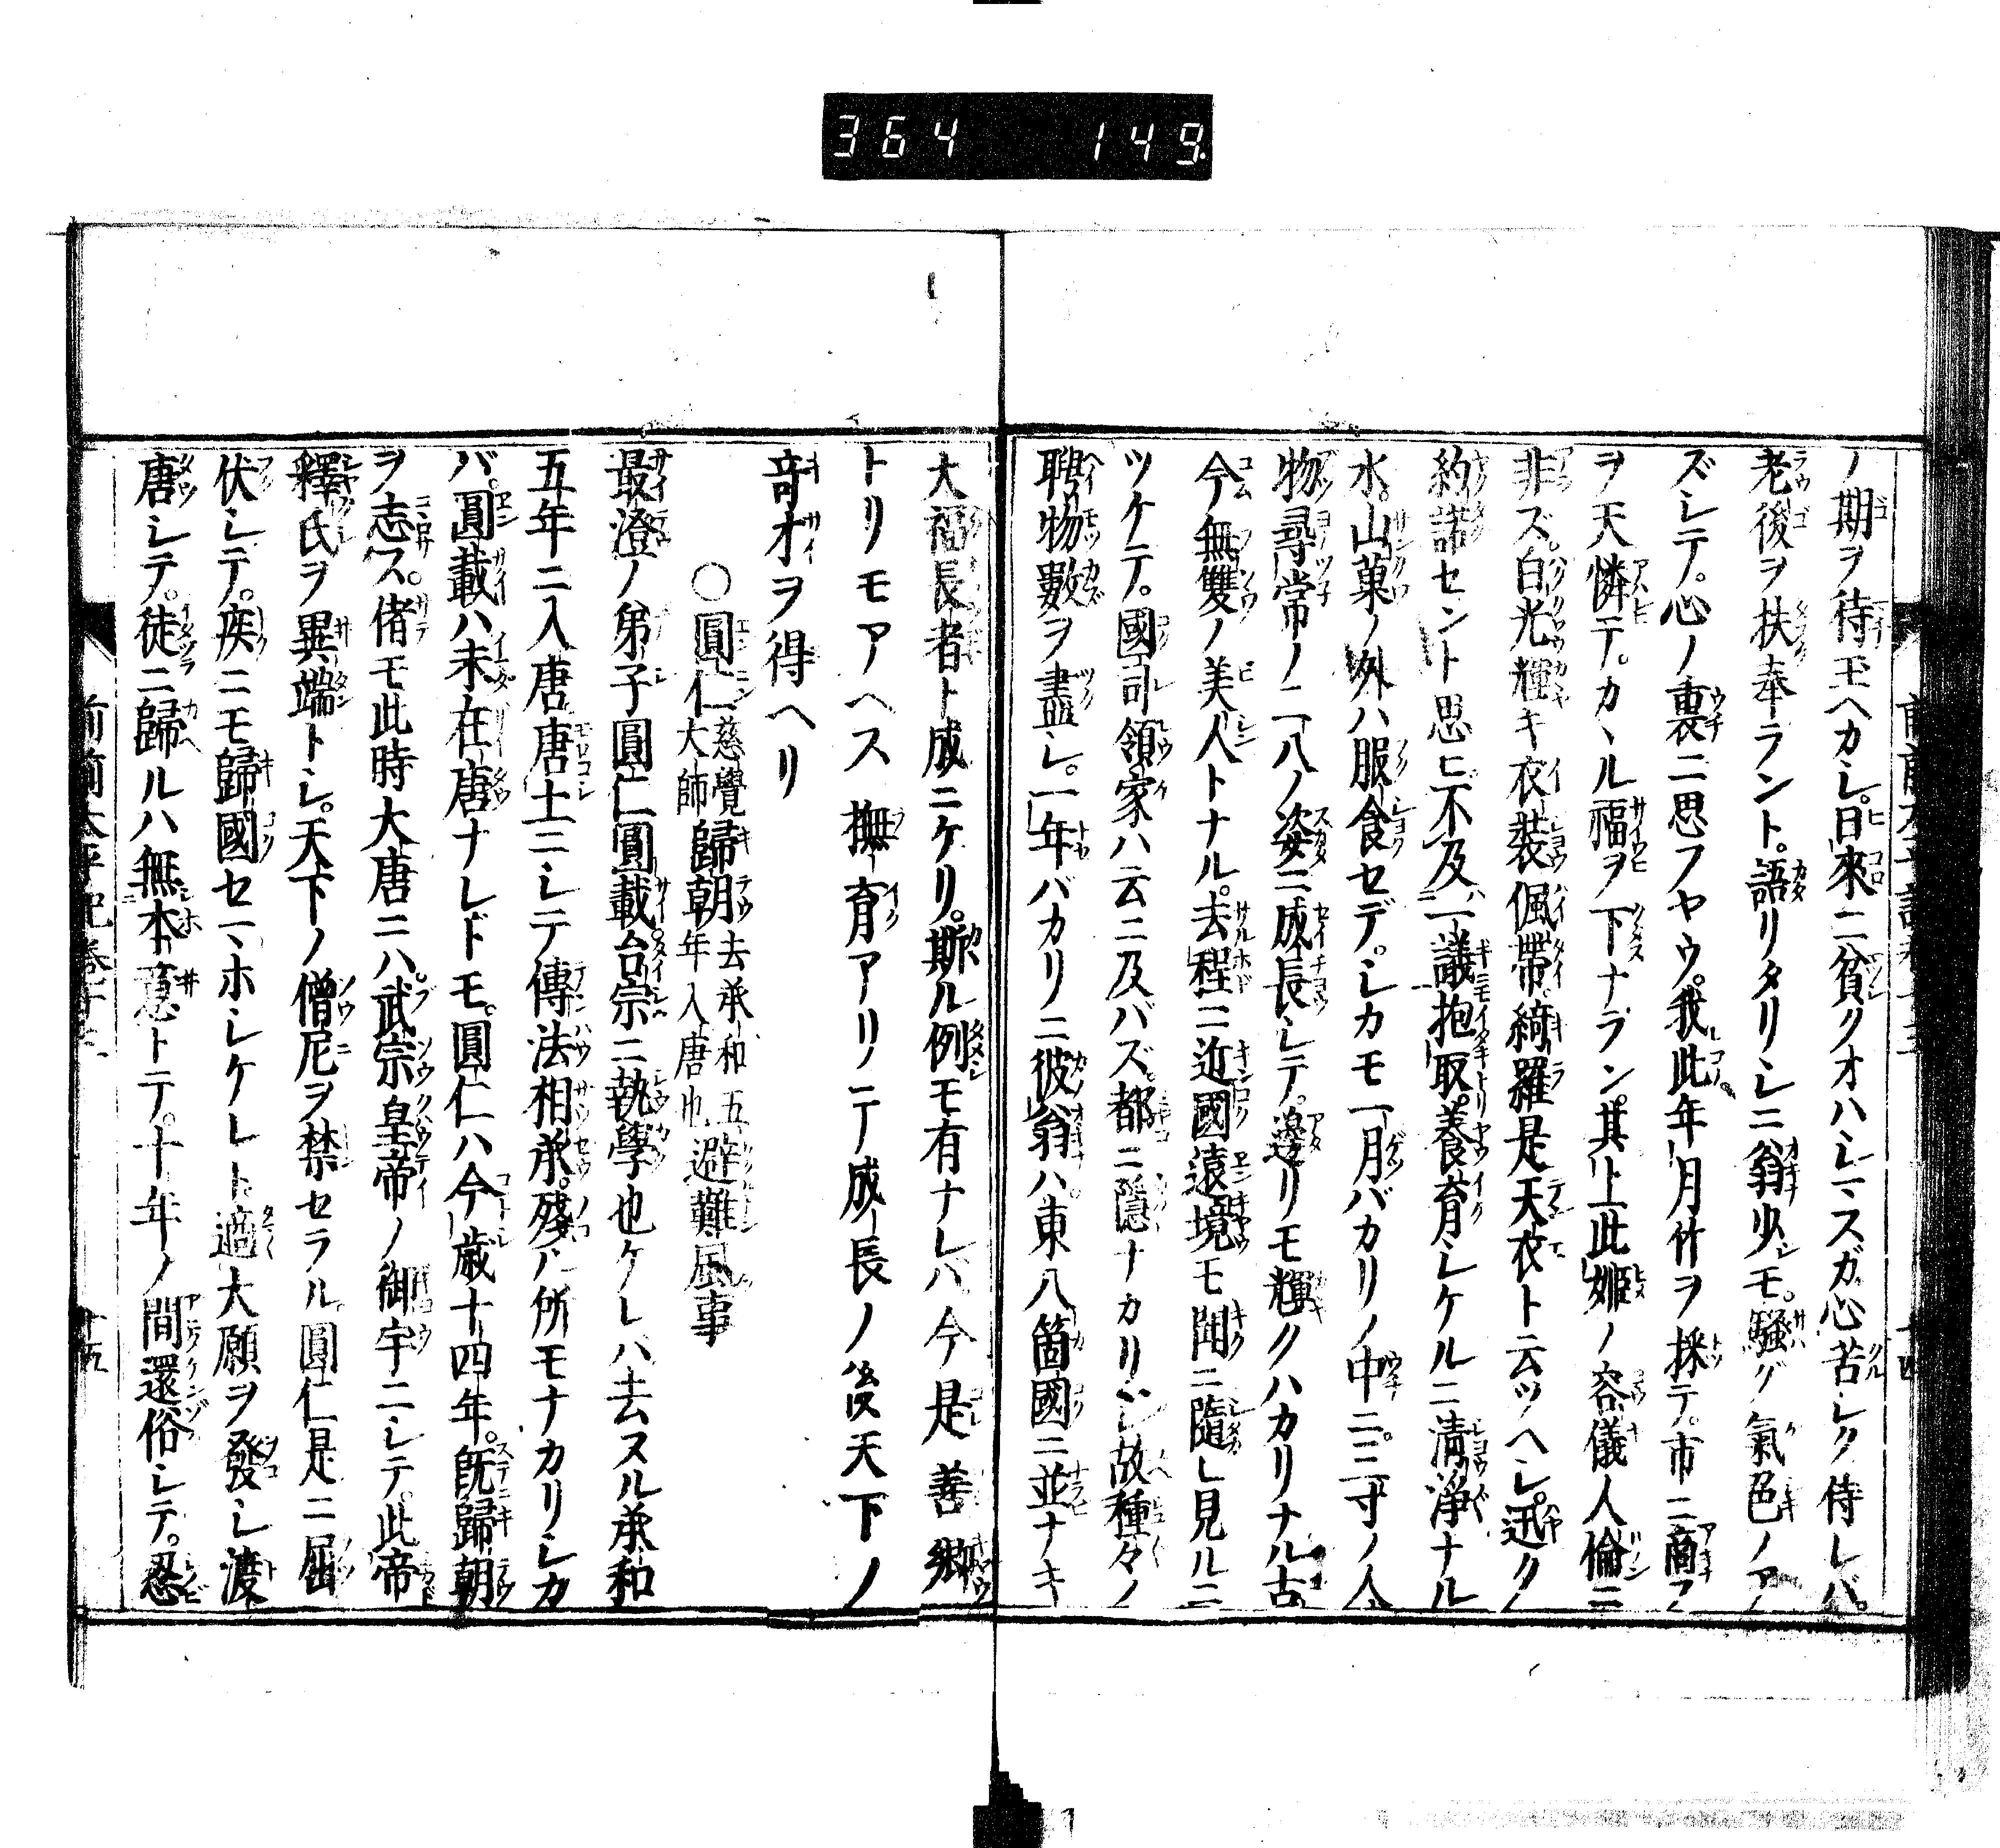 364 149
ノ期ヲ待玉ヘカシ。日來ニ貧クオハシマスガ心苦シク侍レバ。
老後ヲ扶奉ラント。語リタリシニ翁少シモ。騷グ氣色ノアラ
ズシテ。心ノ裏ニ思フヤウ。我此年月竹ヲ採テ。市ニ商フ
ヲ天憐テ。カヽル福ヲ下ナラン。其上此姬ノ容儀人倫ニ
非ズ。白光輝キ衣裝佩帶綺羅是天衣ト云ツヘシ。迅ク
約諾セント思ヒ不及一議抱取。養育シケルニ清淨ナル
水。山菓ノ外ハ服食セデ。シカモ一月バカリノ中ニ。三寸ノ人
物尋常ノ二八ノ姿ニ成長シテ。邊リモ輝クハカリナル古
今無雙ノ美人トナル。去程ニ近國遠境モ聞ニ隨ヒ見ルニ
ツケテ。國司領家ハ云ニ及バズ。都ニ隱ナカリシ故種々ノ
聘物數ヲ盡シ。一年バカリニ彼翁ハ東八箇國ニ並ナキ
大福長者ト成ニケリ。斯ル例モ有ナレバ今是善鄉
トリモアヘス撫育アリ
ニテ成長ノ後天下ノ
奇才ヲ得ヘリ
〇圓仁慈覺大師歸朝去承和五年入唐也避難風事
最澄ノ弟子圓仁圓載台宗ニ執學也ケレバ去スル承和
五年ニ入唐唐土ニシテ傳法相承。殘ル所モナカリシカ
バ。圓載ハ未在唐ナレドモ。圓仁ハ今歲十四年。既歸朝
ヲ志ス。偖モ此時大唐ニハ武宗皇帝ノ御宇ニシテ。此帝
釋氏ヲ異端トシ。天下ノ僧尼ヲ禁セラル。圓仁是ニ屈
伏シテ。疾ニモ歸國セマホシケレト。適大願ヲ發シ渡
唐シテ。徒ニ歸ルハ無本意トテ。十年ノ間還俗シテ。忍
前前太平記卷十
十五